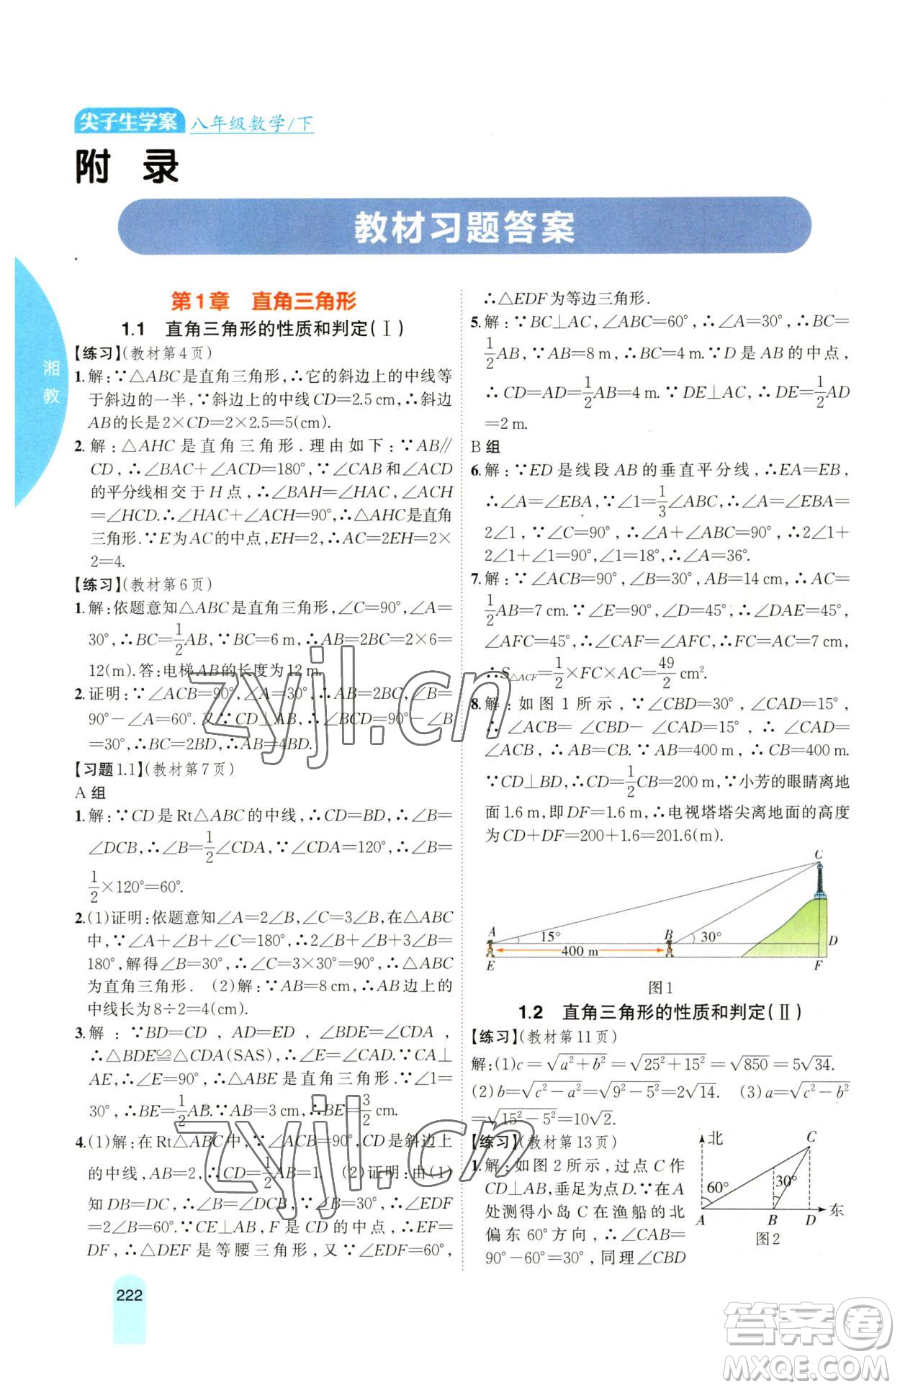 尖子生学案 八年级数学/下
附 录
教材习题答案
湘教
第1章 直角三角形
1.1 直角三角形的性质和判定(Ⅰ)
【练习】(教材第4页)
1.解:∵△ABC是直角三角形,∴它的斜边上的中线等
于斜边的一半,∵斜边上的中线CD=2.5 cm,∴斜边
AB的长是2×CD=2×2.5=5(cm).
2.解:△AHC是直角三角形.理由如下:∵AB∥
CD,∴∠BAC+∠ACD=180°,∵∠CAB和∠ACD
的平分线相交于H点,∴∠BAH=∠HAC,∠ACH
=∠HCD.∴∠HAC+∠ACH=90°,∴△AHC是直角
三角形.∵E为AC的中点,EH=2,∴AC=2EH=2×
2=4.
【练习】(教材第6页)
1.解:依题意知△ABC是直角三角形,∠C=90°,∠A=
30°,∴BC=1/2AB,∵BC=6 m,∴AB=2BC=2×6=
12(m).答:电梯AB的长度为12 m.
2.证明:∵∠ACB=90°,∠A=30°,∴AB=2BC,∠B=
90°-∠A=60°.又∵CD⊥AB,∴∠BCD=90°-∠B
=30°,∴BC=2BD,∴AB=4BD.
【习题1.1】(教材第7页)
A组
1.解:∵CD是Rt△ABC的中线,∴CD=BD,∴∠B=
∠DCB,∴∠B=1/2∠CDA,∵∠CDA=120°,∴∠B=
1/2×120°=60°.
2.(1)证明:依题意知∠A=2∠B,∠C=3∠B,在△ABC
中,∵∠A+∠B+∠C=180°,∴2∠B+∠B+3∠B=
180°,解得∠B=30°,∴∠C=3×30°=90°,∴△ABC
为直角三角形. (2)解:∵AB=8 cm,∴AB边上的
中线长为8÷2=4(cm).
3.解:∵BD=CD,AD=ED,∠BDE=∠CDA,
∴△BDE≌△CDA(SAS),∴BE=CA,∠E=
∠CAE=90°,∴△ABE是直角三角形,又∵∠1=
30°,∴BE=1/2AB,∵AB=3 cm,∴BE=3/2 cm.
4.(1)解:在Rt△ABC中,∵∠ACB=90°,CD是斜边上
的中线,AB=2,∴CD=1/2AB=1. (2)证明:由(1)
知DB=DC,∴∠BCD=∠B=30°,∴∠EDF
=2∠B=60°.∵CE⊥AB,F是CD的中点,∴EF=
DF,∴△DEF是等腰三角形,又∵∠EDF=60°,
∴△EDF为等边三角形.
5.解:∵BC⊥AC,∠ABC=60°,∴∠A=30°,∴BC=
1/2AB,∵AB=8 m,∴BC=4 m.∵D是AB的中点,
∴CD=AD=1/2AB=4 m.∵DE⊥AC,∴DE=1/2AD
=2 m.
B组
6.解:∵ED是线段AB的垂直平分线,∴EA=EB,
∴∠A=∠EBA,∵∠1=1/3∠ABC,∴∠A=∠EBA=
2∠1,∵∠C=90°,∴∠A+∠ABC=90°,∴2∠1+
2∠1+∠1=90°,∠1=18°,∴∠A=36°.
7.解:∵∠ACB=90°,∠B=30°,AB=14 cm,∴AC=
1/2AB=7 cm.∵∠E=90°,∠D=45°,∴∠DAE=45°,
∠AFC=45°,∴∠CAF=∠AFC,∴FC=AC=7 cm,
∴S△ACF=1/2×FC×AC=49/2 cm².
8.解:如图1所示,∵∠CBD=30°,∠CAD=15°,
∴∠ACB=∠CBD-∠CAD=15°,∴∠CAD=
∠ACB,∴BC=AB.∵AB=400 m,∴CB=400 m,
∵CD⊥BD,∴CD=1/2CB=200 m,∵小芳的眼睛离地
面1.6 m,即DF=1.6 m,∴电视塔塔尖离地面的高度
为CD+DF=200+1.6=201.6(m).
C
A 15° B 30° D
E 400 m F
图1
1.2 直角三角形的性质和判定(Ⅱ)
【练习】(教材第11页)
解:(1)c=√(a²+b²)=√(25²+15²)=√850=5√34.
(2)b=√(c²-a²)=√(9²-5²)=2√14. (3)a=√(c²-b²)
=√(15²-5²)=10√2.
【练习】(教材第13页)
1.解:如图2所示,过点C作
CD⊥AB,垂足为点D.∵在A
处测得小岛C在渔船的北
偏东60°方向,∴∠CAB=
90°-60°=30°,同理∠CBD
北 C
60° 30°
A B D 东
图2
222
zyjl.cn
zyjl.cn
答案圈
MXQE.COM